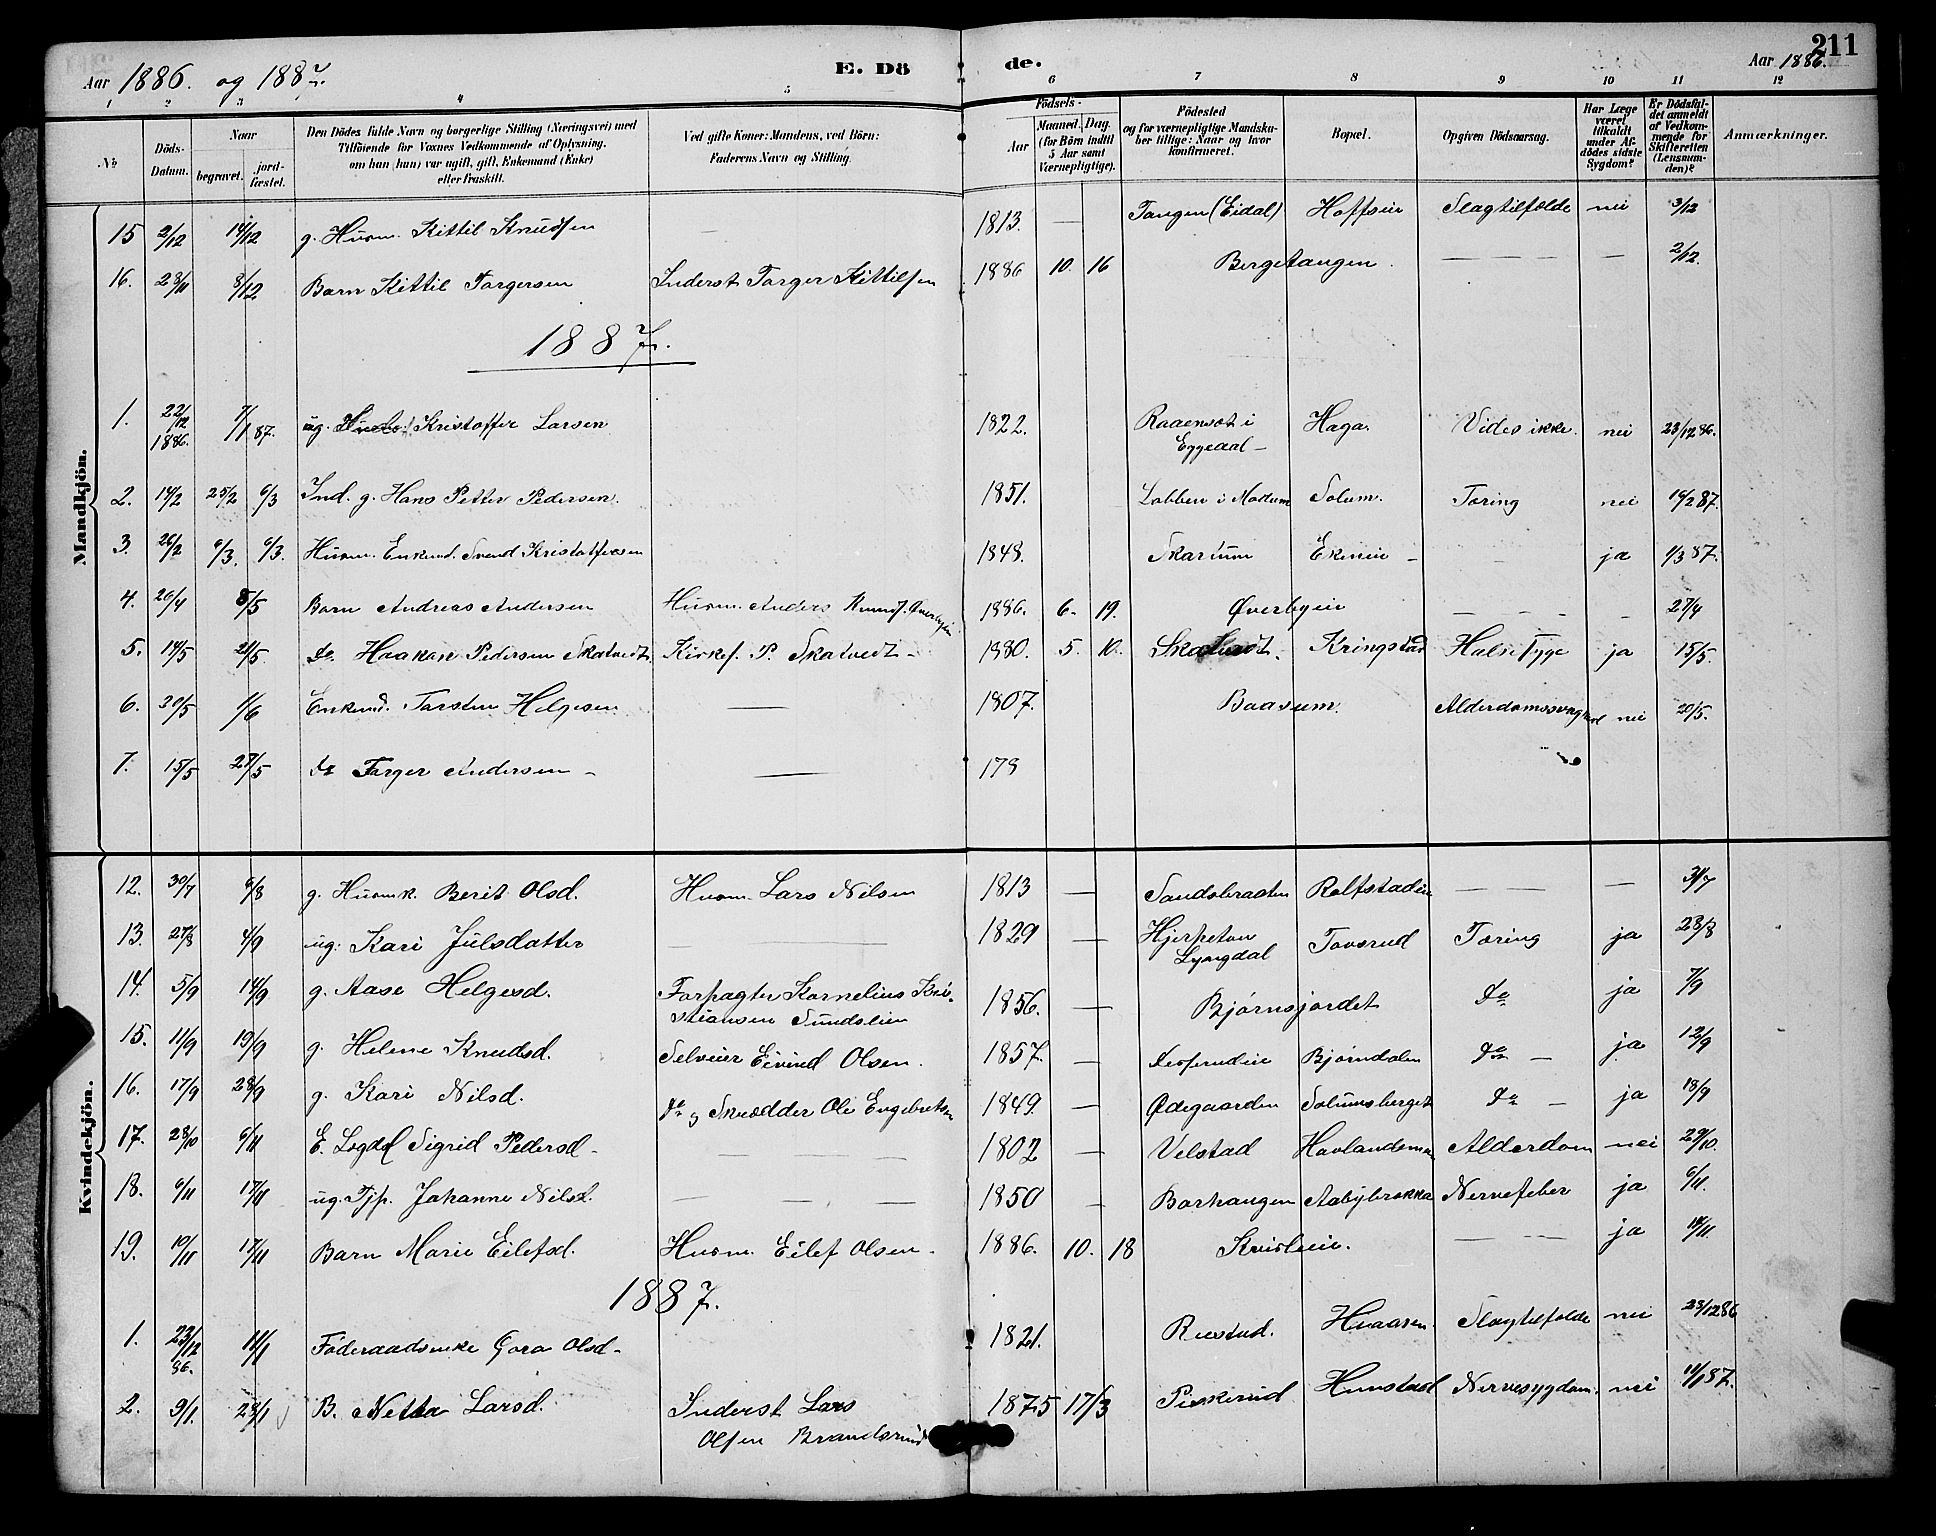 211
Aar 1886. og 1887.
E. Dö
de.
Aar 1886.
1 2 3 4 5 6 7 8 9 10 11 12
No
Döds-Datum.
Naar
begravet.
jord-fæstet.
Den Dödes fulde Navn og borgerlige Stilling (Næringsvei) med
Tilföiende for Voxnes Vedkommende af Oplysning,
om han (hun) var ugift, gift, Enkemand (Enke)
eller fraskilt.
Ved gifte Koner: Mandens, ved Börn:
Faderens Navn og Stilling.
Födsels-
Aar
Maaned. Dag.
(for Börn indtil
5 Aar samt
Værnepligtige).
Födested
og for værnepligtige Mandska-
ber tillige: Naar og hvor
konfirmeret.
Bopæl.
Opgiven Dödsaarsag.
Har Læge
været
tilkaldt
under Af-
dödes sidste
Sygdom?
Er Dödsfal-
det anmeldt
af Vedkom-
mende for
Skifteretten
(Lensman-
den)?
Anmærkninger.
Mandkjön.
15 2/12 14/12 g. Husm. Kittil Knudsen — 1813. — Tangen (Eidal) Hoffseie Slagtilfælde nei 3/12
16. 28/11 8/12 Barn Kittil Torgersen Inderst Torger Kittilsen 1886 10. 16 Bergetangen. — — — — 2/12.
1887.
1. 22/12 1886. 7/1 87. ug. Kristoffer Larsen 1822. Raaensæt i Eggedal — Haga. Vides ikke. nei 23/12 86.
2. 14/2 25/2 6/3 Ind. g. Hans Petter Pedersen. 1851. Labben i Modum Solum. Tæring nei 16/2 87.
3. 26/2 6/3. 6/3. Husm. Enkemd. Svend Kristoffersen 1848. Skartum Ekeneie — — ja 1/3 87.
4. 26/4 8/5 Barn Andreas Andersen Husm. Anders 1886. 6. 19. Øverbyeie — — — 27/4
5. 14/5 21/5. do. Haakon Pedersen Skatvedt. Kirkes. P. Skatvedt — 1880. 5. 10. Skatvedt. Kringstad Halssyge ja 15/5.
6. 20/5 1/6 Enkemd. Torsten Helgesen — 1807. Baasum. Alderdomssvaghed nei 20/5.
7. 15/5 27/5 do Torger Andersen — — 178
Kvindekjön.
12. 30/7 6/8 g. Husmk. Berit Olsd. Husm. Lars Nilsen 1813 — Sandsbraaten Rolfstadeie — — — 31/7
13. 27/8 4/9 ug. Kari Julsdatter — — 1829 — Hjerpeton Lyngdal Tovsrud Tæring ja 23/8
14. 5/9 14/9 g. Aase Helgesd. Forpagter Kornelius Kri-
stiansen Sundsleien 1856. — Bjørnsjordet do ja 7/9
15. 11/9 19/9 g. Helene Knudsd. Selveier Eivind Olsen. 1857. — Bjørndalen do — ja 12/9
16. 17/9 28/9 g. Kari Nilsd. do g Skrædder Ole Engebretsen 1849. — Ødegaarden Solumsberget do — ja 18/9
17. 28/10 6/11 E. Legdel Sigrid Pedersd. — — — — 1802 — Velstad Alderdom nei 29/10.
18. 6/11 17/11 ug. Tjp. Johanne Nilsd. — — — 1850 — Borhaugen Aabybrokka Nervefeber ja 6/11.
19. 10/11 17/11 Barn Marie Eilefsd. Husm. Eilef Olsen. 1886. 10. 18 — — — ja 14/11.
1887.
1. 23/12 86. 14/1 Føderaadsenke Gora Olsd. 1821. Rustad. Slagtilfælde nei 23/12 86
2. 9/1. 23/1 B. Netta Larsd. Inderst Lars
Olsen Brandsrud 1875 17/3 Piskerud Hunstad Nervesygdom. nei 11/1 87.